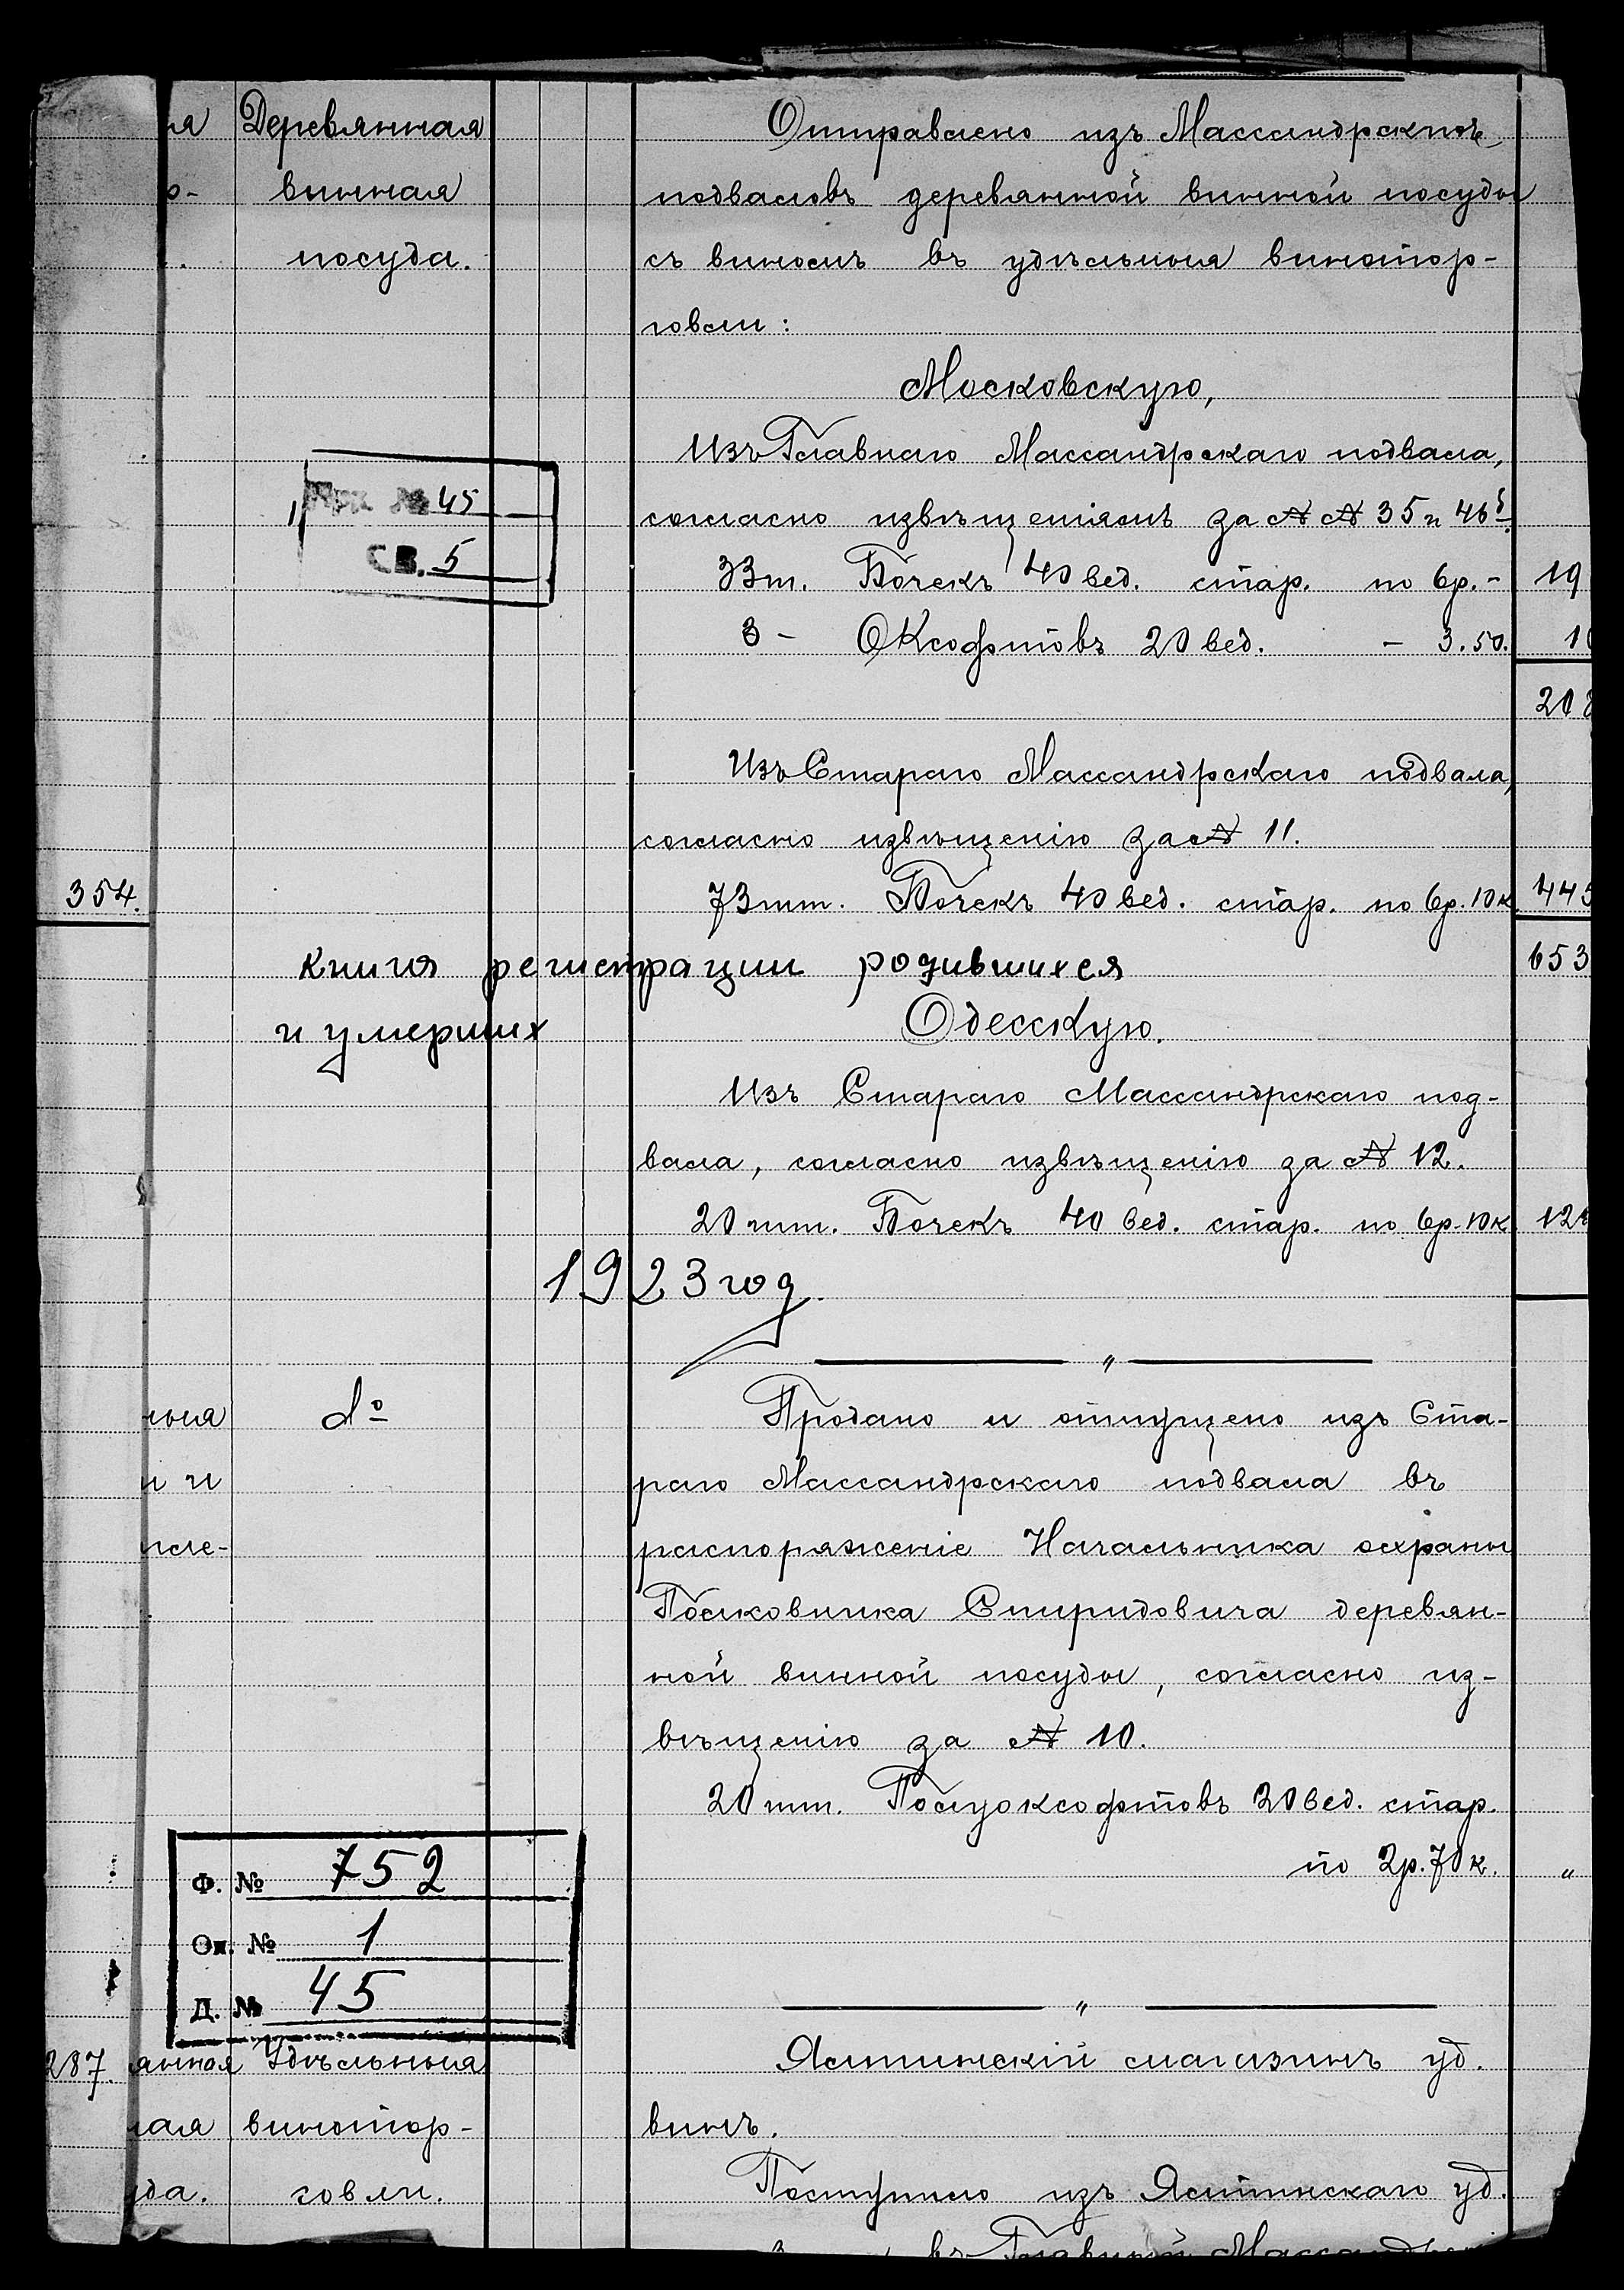 Деревянная
винная
посуда.
Отправлено изъ Массандрскихъ
подваловъ деревянной винной посуды
съ виномъ въ удѣльныя винотор-
говли:
Московскую,
Изъ Главнаго Массандрскаго подвала,
согласно извѣщеніямъ за № № 35 и 46
33т. Бочекъ 40 вед. стар. по 6р. - 19
3 - Оксофтовъ 20 вед. - 3.50.
208
№ 45
СВ. 5
Изъ Стараго Массандрскаго подвала,
согласно извѣщенію за № 11.
354.
73 шт. Бочекъ 40 вед. стар. по 6р. 10к. 445
653
книга регистрации родившихся
и умерших
Одесскую.
Изъ Стараго Массандрскаго под-
вала, согласно извѣщенію за № 12.
20 шт. Бочекъ 40 вед. стар. по 6р. 10к
1923 год.
"
Продано и отпущено изъ Ста-
раго Массандрскаго подвала въ
распоряженіе Начальника охраны
Полковника Спиридовича деревян-
ной винной посуды, согласно из-
вѣщенію за № 10.
20 шт. Полуоксофтовъ 20 вед. стар.
по 2р. 70к. "
Ф. № 752
Оп. № 1
Д. № 45
"
287. янная Удѣльныя
винотор-
говли.
Ялтинскій магазинъ уд.
винъ.
Поступило изъ Ялтинскаго уд.
въ Главный